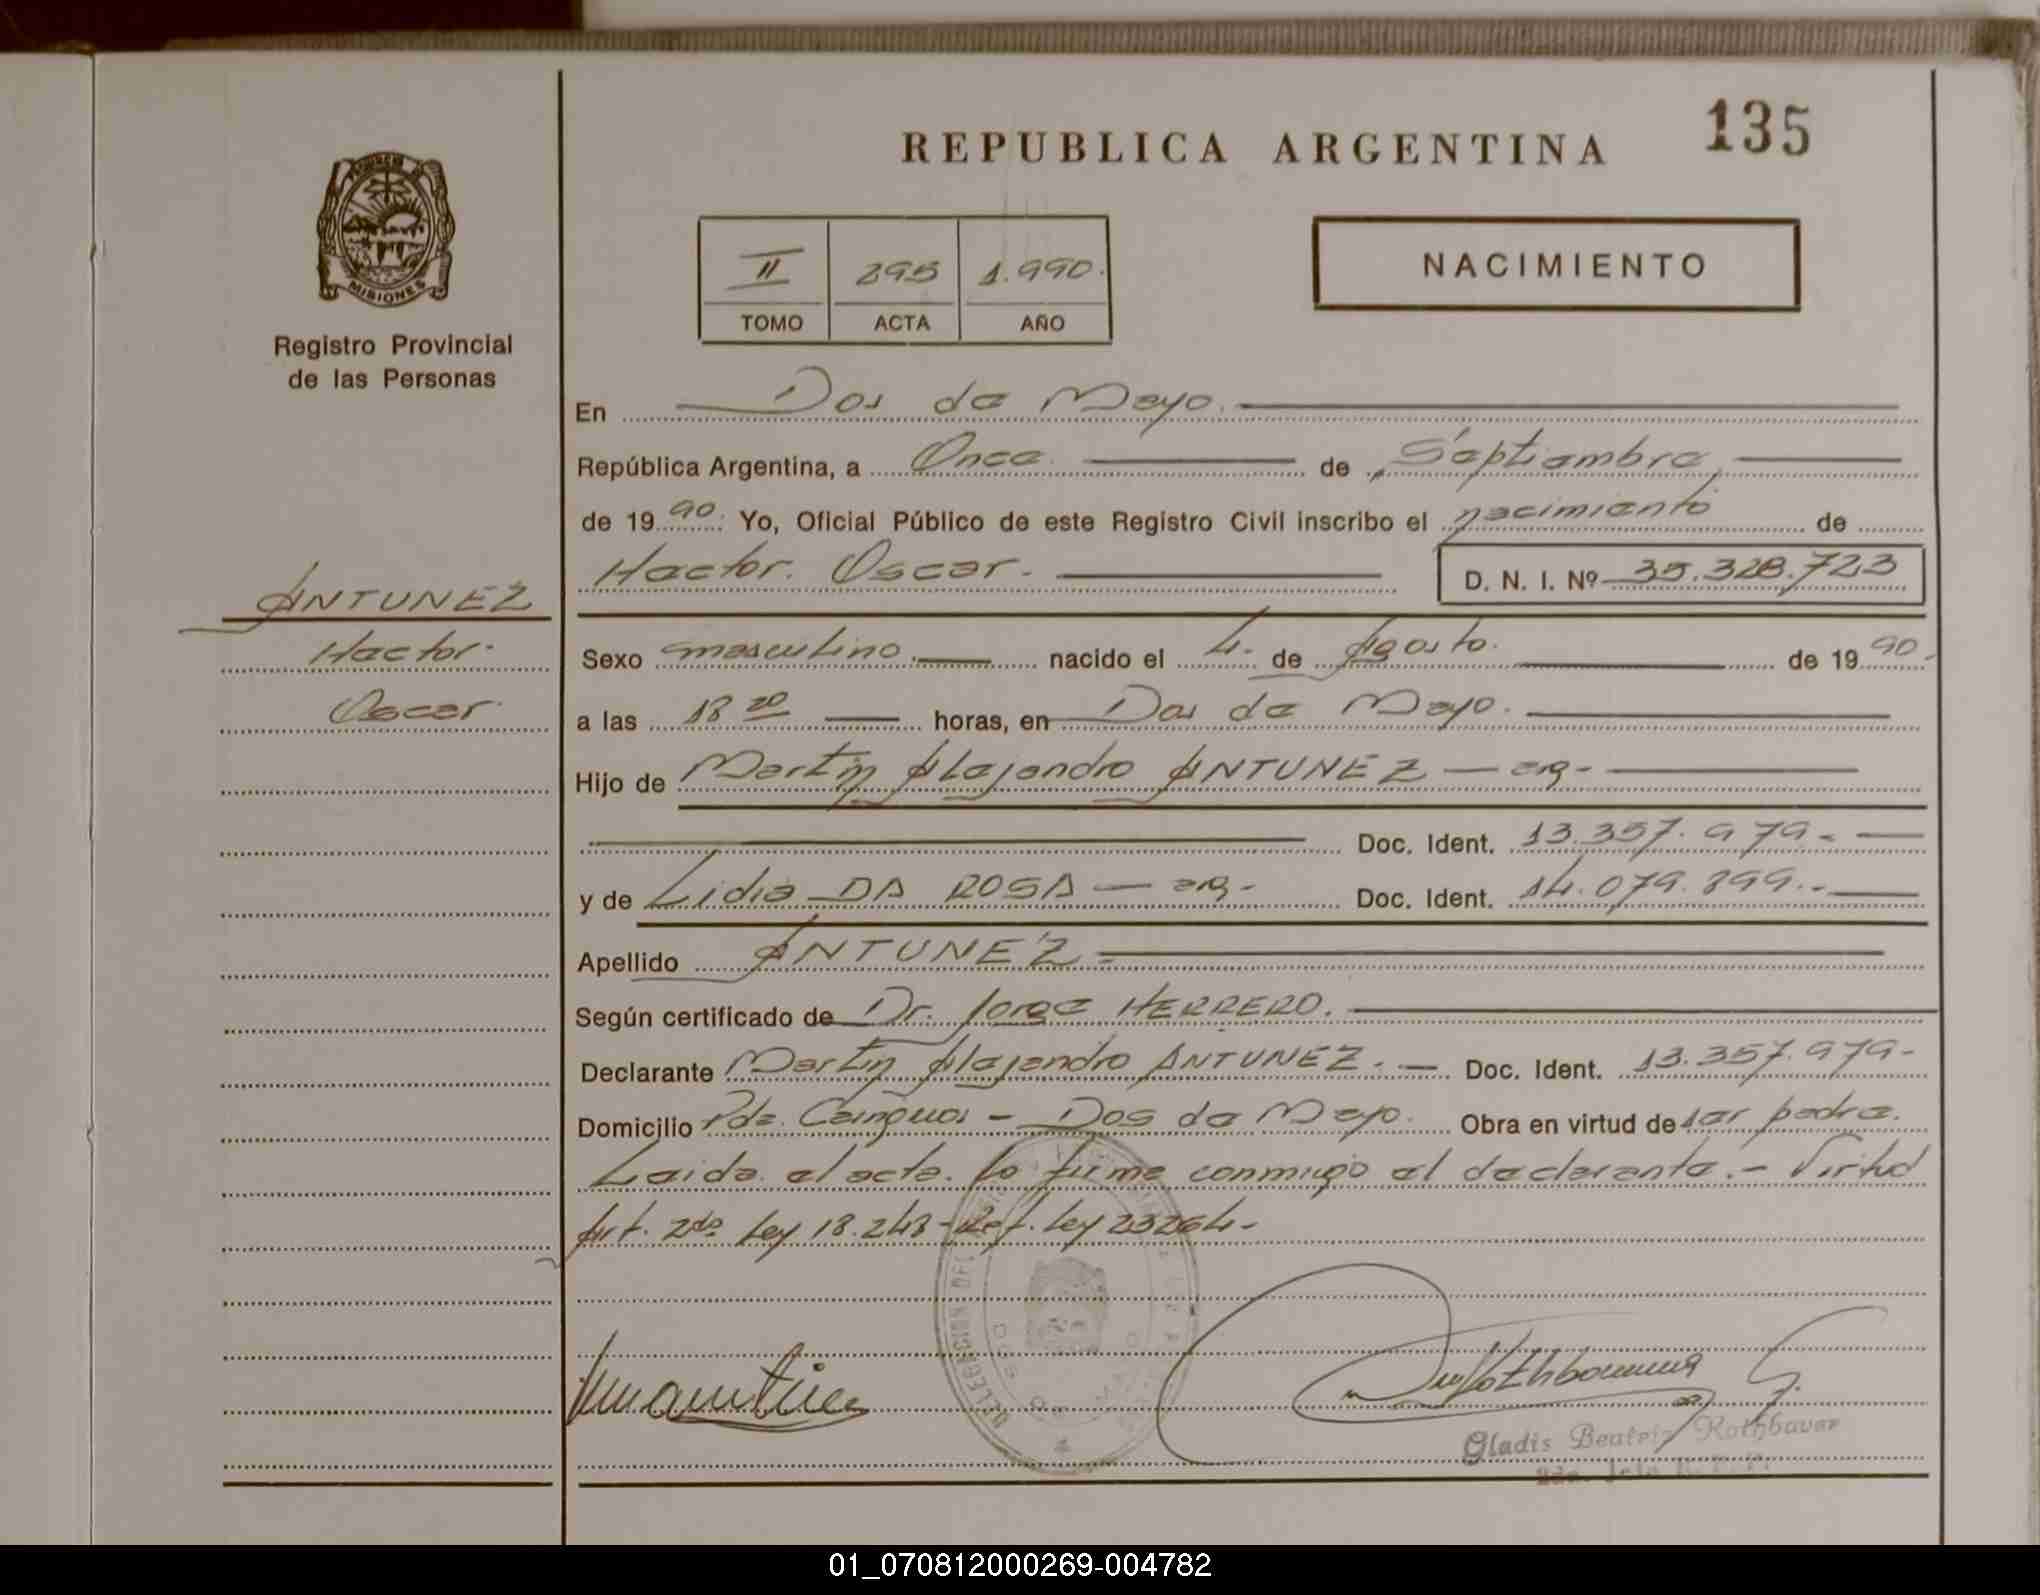 REPUBLICA ARGENTINA
135
MISIONES
Registro Provincial
de las Personas
II 295 1.990.
TOMO ACTA AÑO
NACIMIENTO
En Dos de Mayo.
República Argentina, a Once de Septiembre
de 1990. Yo, Oficial Público de este Registro Civil inscribo el nacimiento de
Hector Oscar. D. N. I. Nº 35.328.723
ANTUNEZ
Hector
Oscar
Sexo masculino. nacido el 4. de Agosto. de 1990.
a las 18 20 horas, en Dos de Mayo.
Hijo de Martin Alejandro ANTUNEZ — arg-
Doc. Ident. 13.357.979.-
y de Lidia DA ROSA — arg- Doc. Ident. 14.079.899.-
Apellido ANTUNEZ
Según certificado de Dr. Jorge HERRERO.
Declarante Martin Alejandro ANTUNEZ. — Doc. Ident. 13.357.979-
Domicilio Pde. Cainguas - Dos de Mayo. Obra en virtud de ser padre.
Leida el acta. la firma conmigo el declarante.- Virtud
Art. 2do Ley 18.248- Ref. Ley 23264-
DELEGACION DEL
DOS DE MAYO
Gladis Beatriz Rothbauer
01_070812000269-004782